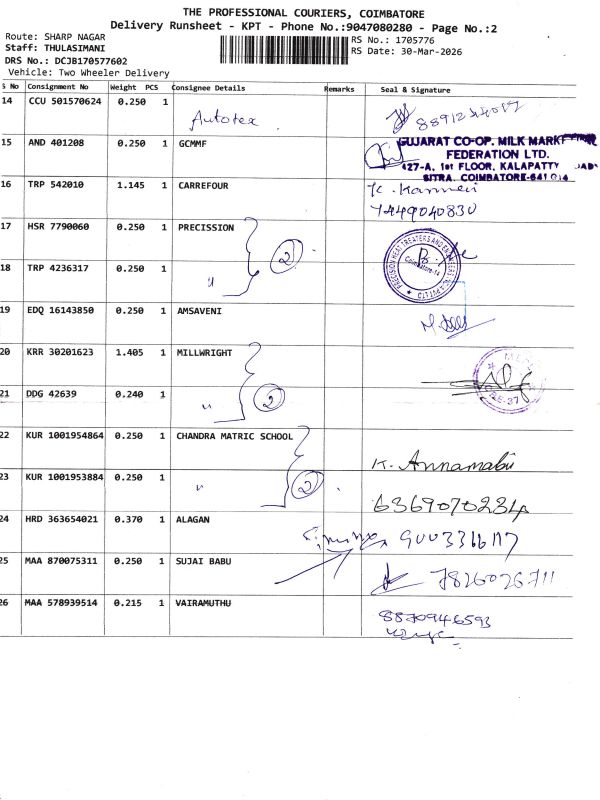 THE PROFESSIONAL COURIERS, COIMBATORE
Delivery Runsheet - KPT - Phone No.:9047080280 - Page No.:2
Route: SHARP NAGAR
Staff: THULASIMANI
DRS No.: DCJB170577602
Vehicle: Two Wheeler Delivery
RS No.: 1705776
RS Date: 30-Mar-2026
S No Consignment No Weight PCS Consignee Details Remarks Seal & Signature
14 CCU 501570624 0.250 1 Autotex
15 AND 401208 0.250 1 GCMMF
GUJARAT CO-OP. MILK MARKETING
FEDERATION LTD.
427-A, 1st FLOOR, KALAPATTY
SITRA, COIMBATORE-641 014
16 TRP 542010 1.145 1 CARREFOUR
7449040830
17 HSR 7790060 0.250 1 PRECISSION 2
18 TRP 4236317 0.250 1 "
PRECISION HEAT TREATERS AND ENGINEERS
Coimbatore-14
19 EDQ 16143850 0.250 1 AMSAVENI
20 KRR 30201623 1.405 1 MILLWRIGHT
21 DDG 42639 0.240 1 " 2
22 KUR 1001954864 0.250 1 CHANDRA MATRIC SCHOOL K. Annamabu
23 KUR 1001953884 0.250 1 " 2 6369070234
24 HRD 363654021 0.370 1 ALAGAN
25 MAA 870075311 0.250 1 SUJAI BABU 7826026711
26 MAA 578939514 0.215 1 VAIRAMUTHU 8870946593